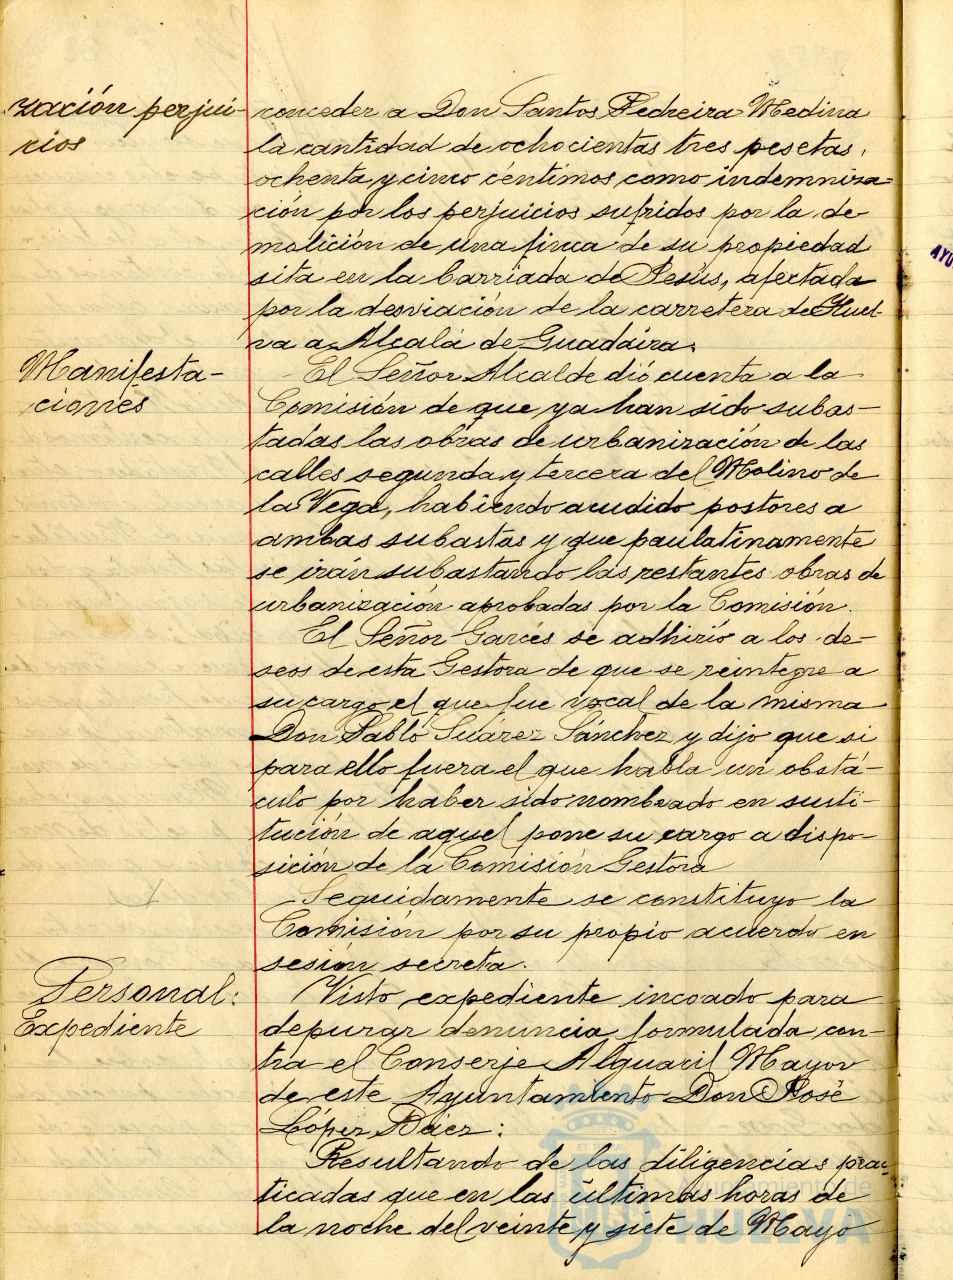 zación perjui-
cios
conceder a Don Santos Pedreira Medina
la cantidad de ochocientas tres pesetas,
ochenta y cinco céntimos como indemniza-
ción por los perjuicios sufridos por la de
molición de una finca de su propiedad
sita en la barriada de Jesús, afectada
por la desviación de la carretera de Huel-
va a Alcalá de Guadaira.
Manifesta-
ciones
El Señor Alcalde dió cuenta a la
Comisión de que ya han sido subas-
tadas las obras de urbanización de las
calles segunda y tercera del Molino de
la Vega, habiendo acudido postores a
ambas subastas y que paulatinamente
se irán subastando las restantes obras de
urbanización aprobadas por la Comisión.
El Señor Garcés se adhirió a los de-
seos de esta Gestora de que se reintegre a
su cargo el que fue vocal de la misma
Don Pablo Suárez Sánchez y dijo que si
para ello fuera el que habla un obstá-
culo por haber sido nombrado en susti-
tución de aquel pone su cargo a dispo-
sición de la Comisión Gestora
Seguidamente se constituyo la
Comisión por su propio acuerdo en
sesión secreta.
Personal:
Expediente
Visto expediente incoado para
depurar denuncia formulada con-
tra el Conserje Alguacil Mayor
de este Ayuntamiento Don José
López Báez:
Resultando de las diligencias prac-
ticadas que en las últimas horas de
la noche del veinte y siete de Mayo
Ayuntamiento de
HUELVA
AYU